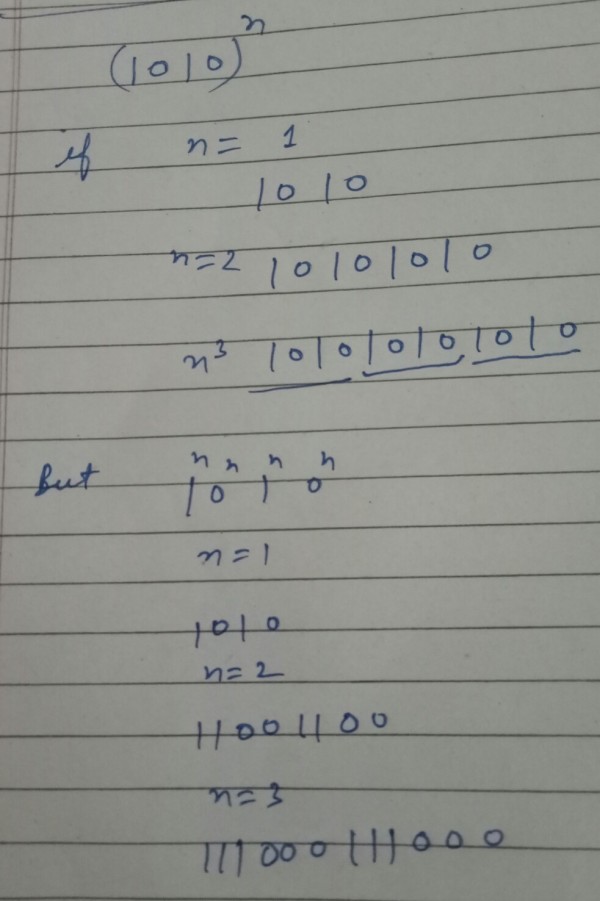 (1010)ⁿ
if n = 1
1010
n=2 10101010
n³ 101010101010
But 1ⁿ0ⁿ1ⁿ0ⁿ
n=1
1010
n=2
11001100
n=3
111000111000